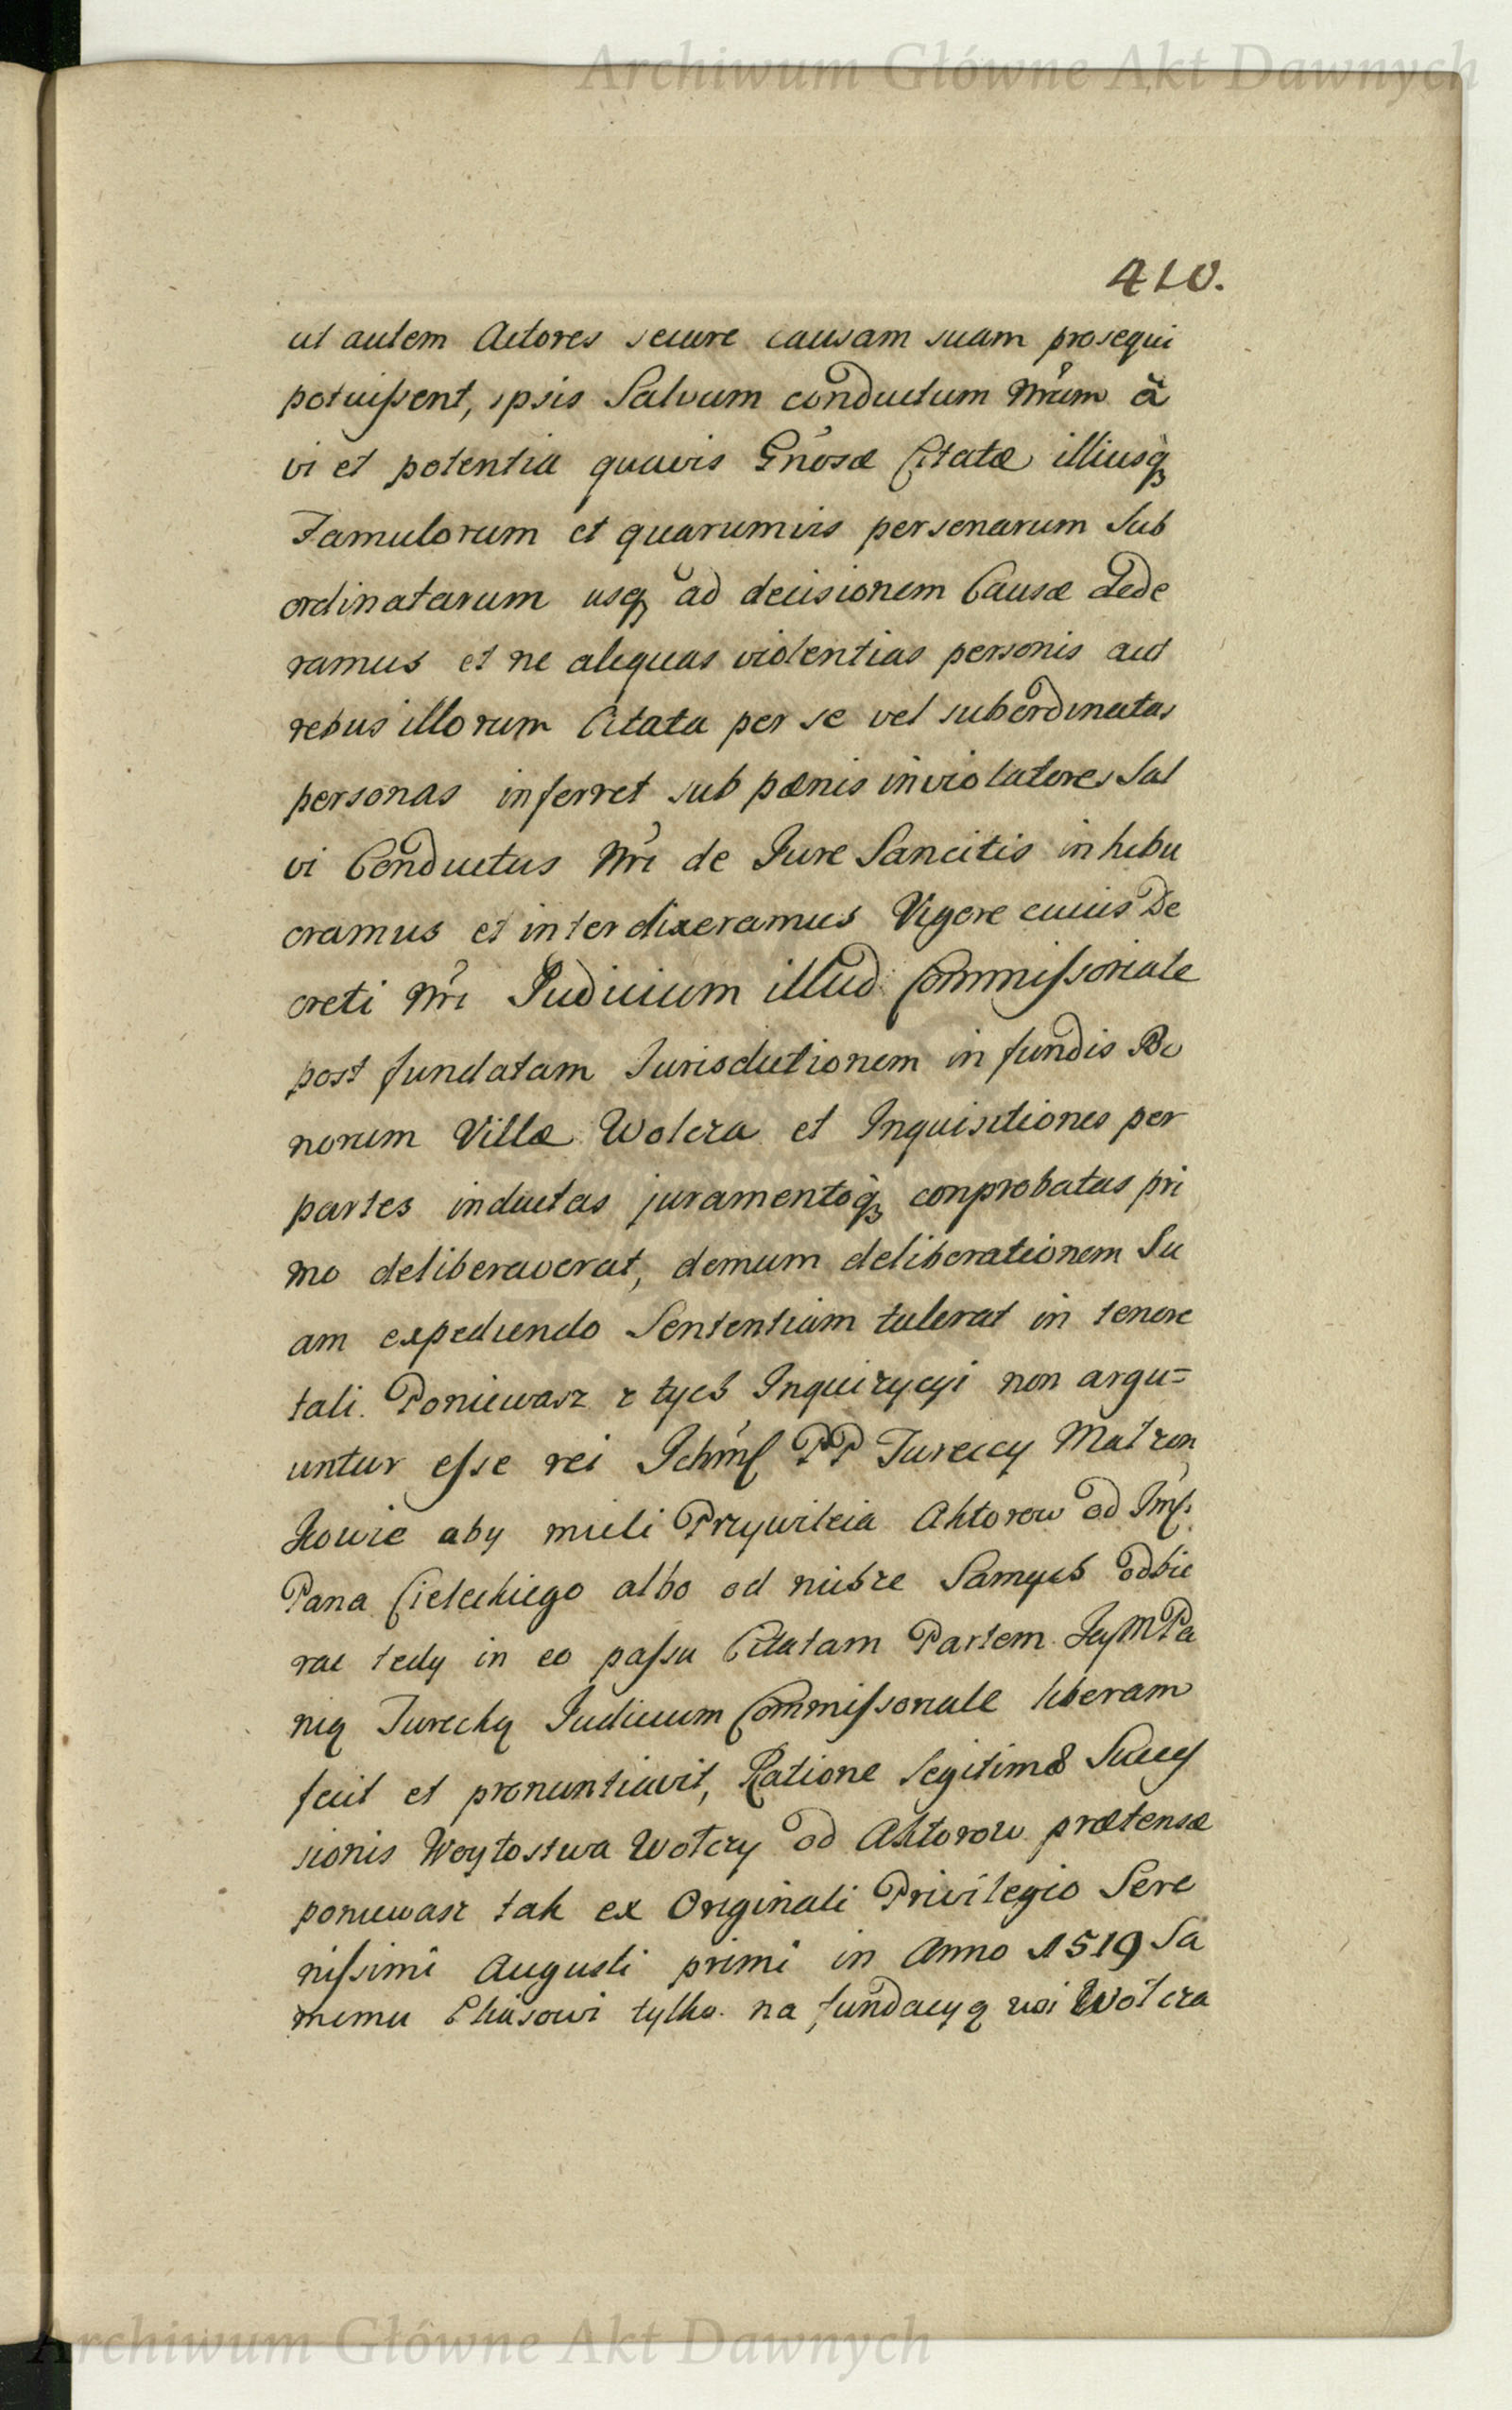 Archiwum Główne Akt Dawnych
410.
ut autem Actores secure causam suam prosequi
potuissent, ipsis Salvum conductum Nrum à
vi et potentia quavis Gnosæ Citatæ illiusq́
Famulorum et quarumvis personarum Sub
ordinatarum usq́ ad decisionem Causæ dede
ramus et ne aliquas violentias personis aut
rebus illorum Citata per se vel subordinatas
personas inferret sub pænis in violatores Sal
vi Conductus Nri de Jure Sancitis inhibu
eramus et interdixeramus Vigore cuius De
creti Nri Judicium illud Commissoriale
post fundatam Jurisdictionem in fundis Bo
norum Villæ Wołcza et Inquisitiones per
partes inductas juramentoq́ conprobatas pri
mo deliberaverat, demum deliberationem Su
am expediendo Sententiam tulerat in tenore
tali. Poniewasz z tych Inquizycyi non argu=
untur esse rei Ichmś PP Tureccy Małzon
kowie aby mieli Przywileia Aktorow od Jmś.
Pana Cieleckiego albo od nichze Samych odbie
rac tedy in eo passu Citatam Partem JeyMPa
nią Turecką Judicium Commissoriale liberam
fecit et pronuntiavit, Ratione legitimæ Succes
sionis Woytostwa Wołczy od Aktorow prætensæ
poniewasz tak ex Originali Privilegio Sere
nissimi Augusti primi in Anno 1519 Sa
memu Eliasowi tylko na fundacyą wsi Wołcza
Archiwum Główne Akt Dawnych